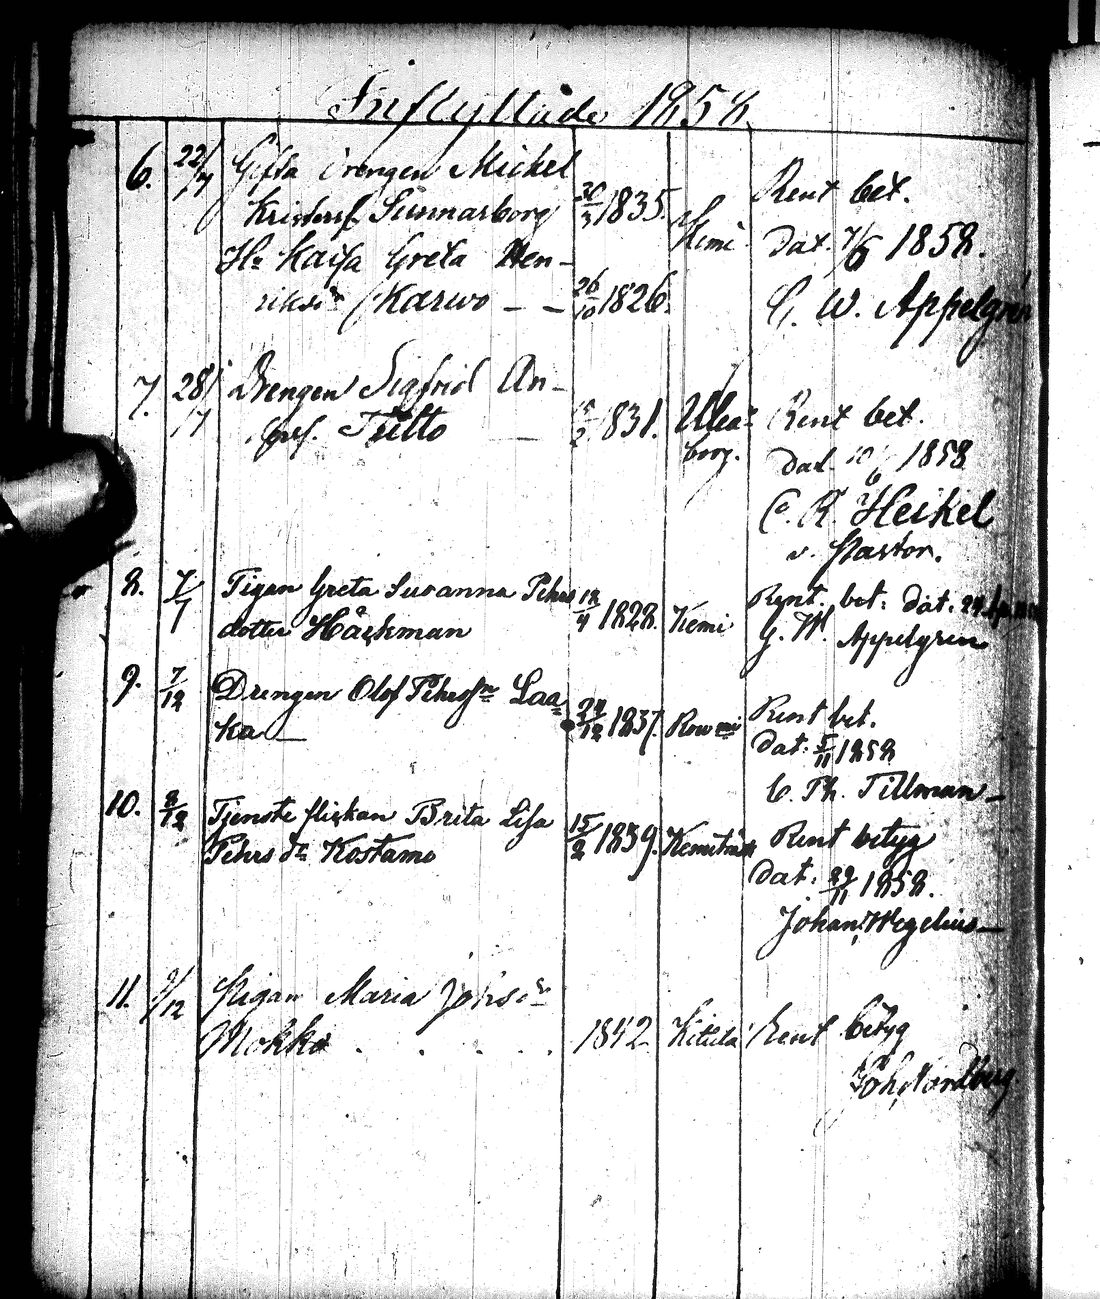 Inflyttade 1858
6. 22/7 Gifta Drengen Mickel
Kristerss. Sunnarborg 30/3 1835. Kemi Rent bet.
dat. 7/6 1858.
Hu Kaisa Greta Hen-
riksdr Karwo - - 26/10 1826. C. W. Appelgren
7. 28/7 Drengen Sigfrid An-
derss. Tutto 1831. Uleå-
borg. Rent bet.
dat. 10/6 1858
C. R. Heikel
v. Pastor.
8. 7/7 Pigan Greta Susanna Pehrs
dotter Håckman 12/4 1828. Kemi Rent. bet. dat.
G. W. Appelgren
9. 7/12 Drengen Olof Pehrssn Laa=
ka 24/12 1837. Rowmi Rent bet.
dat. 5/11 1858
C. Th. Tillman
10. 8/12 Tjenste flickan Brita Lisa
Pehrs dr Kostamo 15/2 1839. Kemiträsk Rent betyg
dat. 29/11 1858.
Johan Wegelius
11. 9/12 Pigan Maria Johsdr
Mokko 1842. Kittilä Rent betyg
Joh. Nordberg